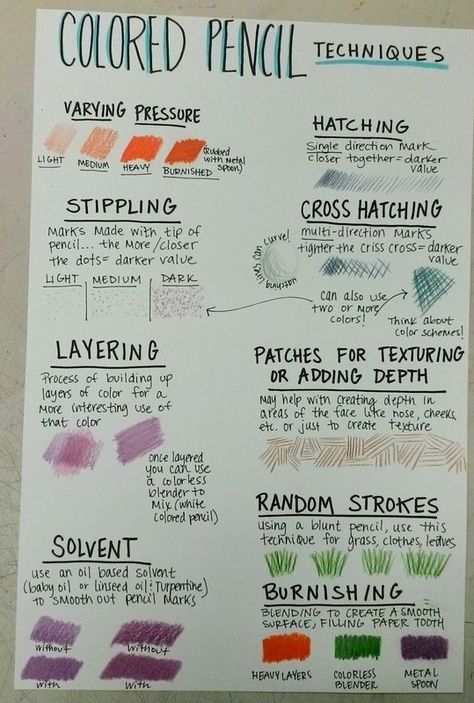 COLORED PENCIL TECHNIQUES
VARYING PRESSURE
LIGHT
MEDIUM
HEAVY
BURNISHED
(Rubbed
with Metal
spoon)
STIPPLING
Marks Made with tip of
pencil... the More/closer
the dots= darker value
LIGHT | MEDIUM | DARK
LAYERING
Process of building up
layers of color for a
More interesting use of
that color
once layered
you can use
a colorless
blender to
Mix (white
colored pencil)
SOLVENT
use an oil based solvent
(baby oil or linseed oil & Turpentine)
to smooth out pencil Marks
without
without
with
with
HATCHING
Single direction mark
closer together= darker
value
CROSS HATCHING
multi-direction marks
tighter the criss cross= darker
value
Hatching lines can curve!
can also use
two or more
colors!
Think about
color schemes!
PATCHES FOR TEXTURING
OR ADDING DEPTH
May help with creating depth in
areas of the face like nose, cheeks,
etc. or just to create texture
RANDOM STROKES
using a blunt pencil, use this
technique for grass, clothes, leaves
BURNISHING
BLENDING TO CREATE A SMOOTH
SURFACE, FILLING PAPER TOOTH
HEAVY LAYERS
COLORLESS
BLENDER
METAL
SPOON